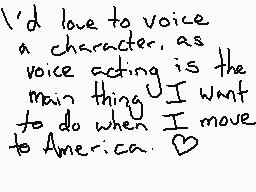 I'd love to voice
a character, as
voice acting is the
main thing I want
to do when I move
to America. ♡